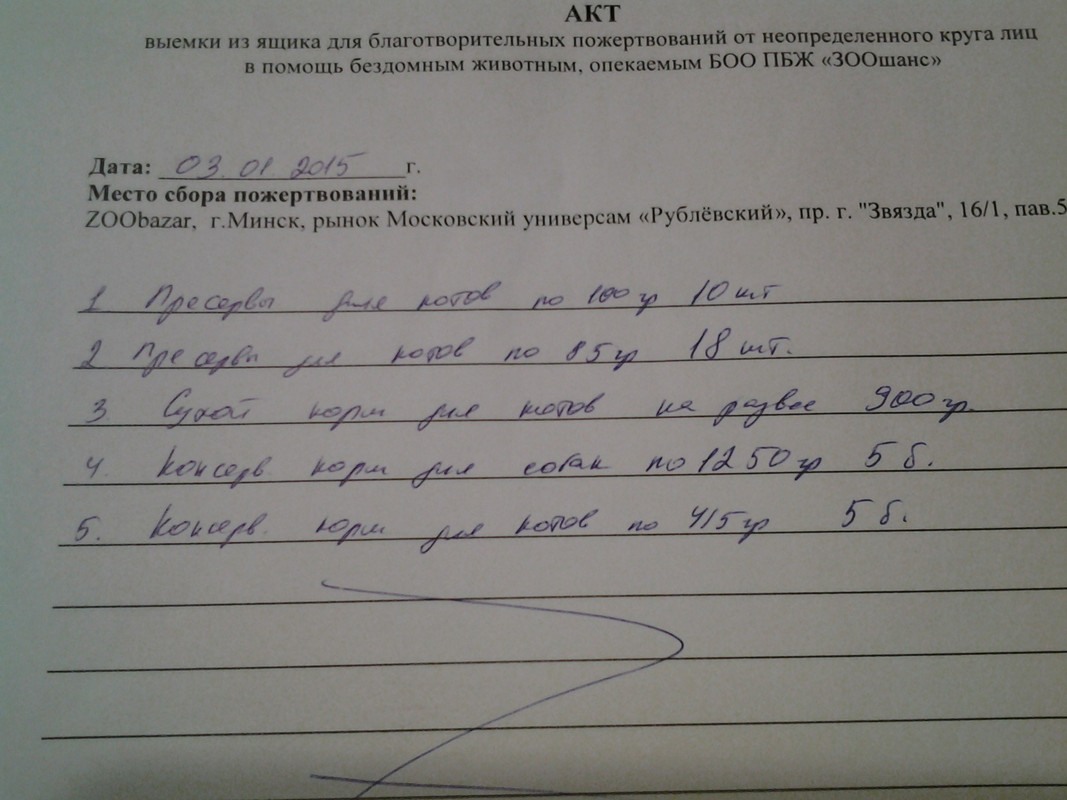 АКТ
выемки из ящика для благотворительных пожертвований от неопределенного круга лиц
в помощь бездомным животным, опекаемым БОО ПБЖ «ЗООшанс»
Дата: 03.01 2015 г.
Место сбора пожертвований:
ZOObazar, г.Минск, рынок Московский универсам «Рублёвский», пр. г. "Звязда", 16/1, пав.5
1 Пресервы для котов по 100 гр 10 шт
2 Пресервы для котов по 85 гр 18 шт.
3. Сухой корм для котов на развес 900 гр.
4. Консерв. корм для собак по 1250 гр 5 б.
5. Консерв. корм для котов по 415 гр 5 б.